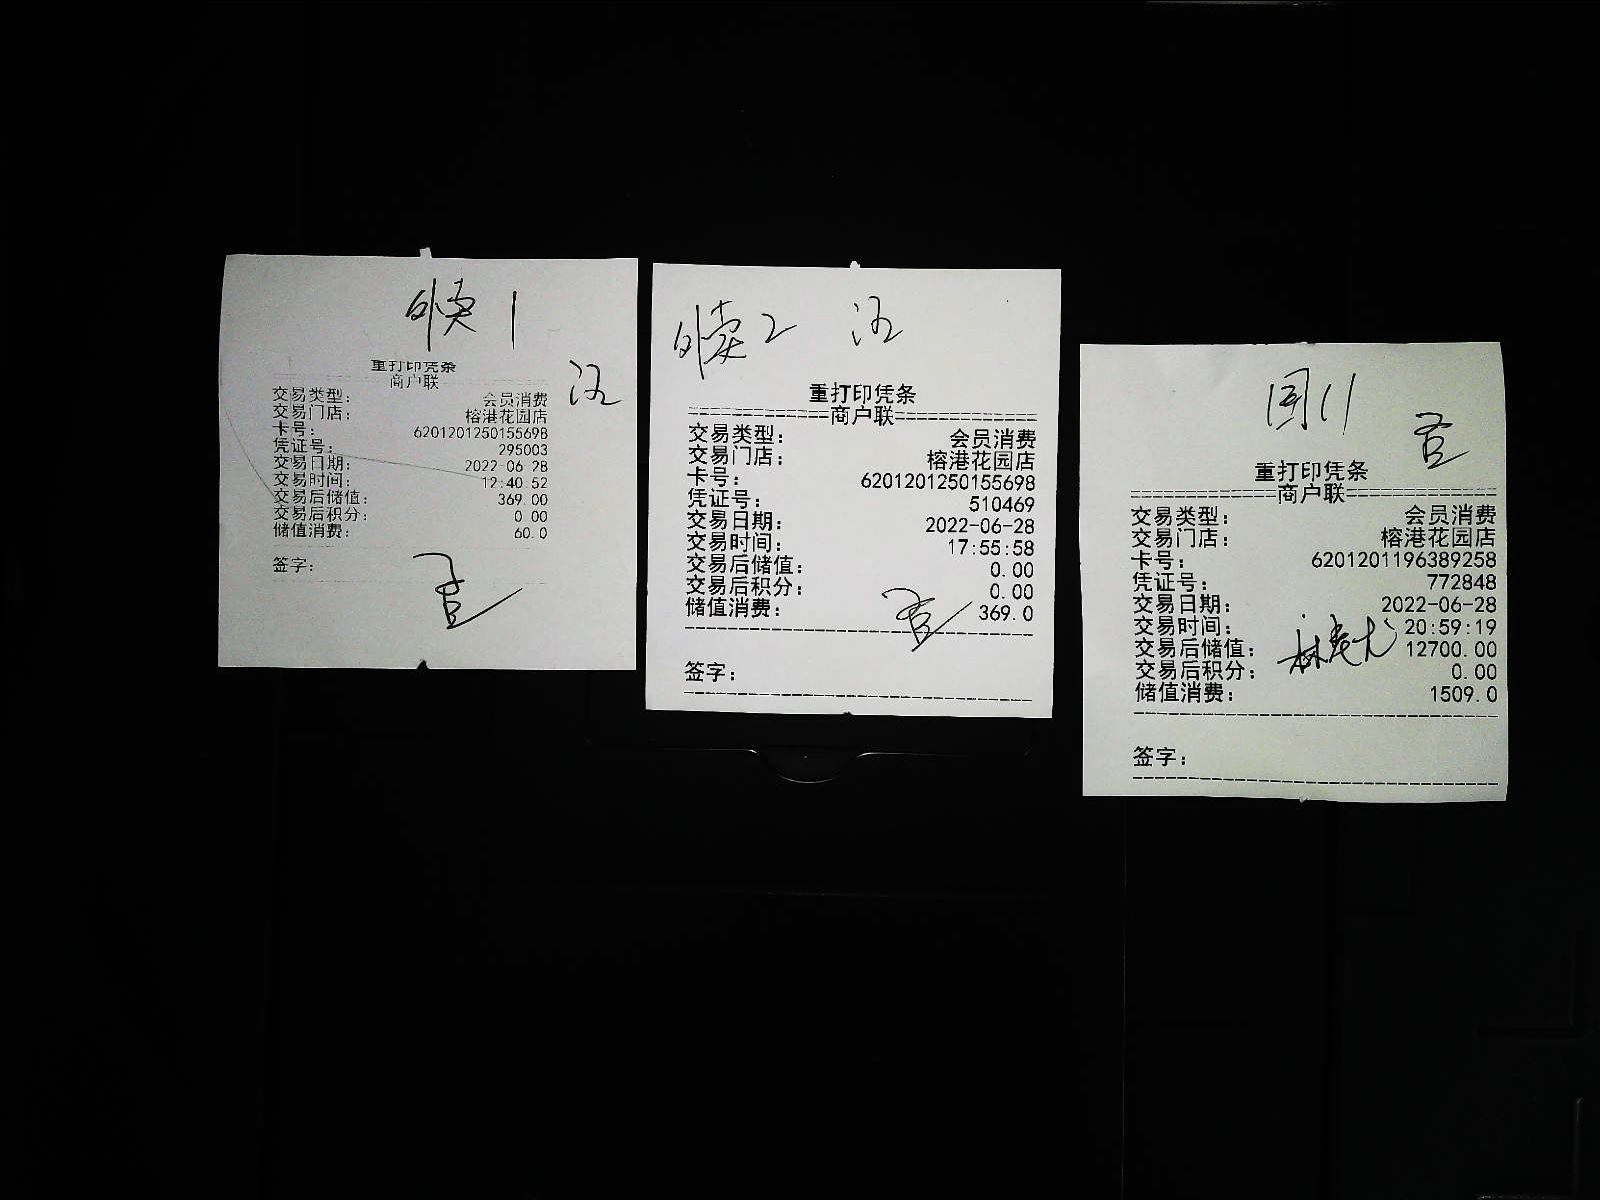 外卖 1
重打印凭条
商户联
交易类型： 会员消费
交易门店： 榕港花园店
卡号： 6201201250155698
凭证号： 295003
交易日期： 2022-06-28
交易时间： 12:40:52
交易后储值： 369.00
交易后积分： 0.00
储值消费： 60.0
签字：
外卖2
重打印凭条
============商户联============
交易类型： 会员消费
交易门店： 榕港花园店
卡号： 6201201250155698
凭证号： 510469
交易日期： 2022-06-28
交易时间： 17:55:58
交易后储值： 0.00
交易后积分： 0.00
储值消费： 369.0
签字：
重打印凭条
============商户联============
交易类型： 会员消费
交易门店： 榕港花园店
卡号： 6201201196389258
凭证号： 772848
交易日期： 2022-06-28
交易时间： 20:59:19
交易后储值： 12700.00
交易后积分： 0.00
储值消费： 1509.0
签字：